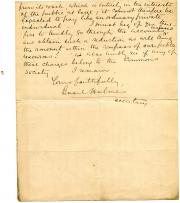 from its work, which is entirely in the interests
of the public at large, it cannot therefore be
expected to pay like an ordinary private
individual. I must beg of you therefore
to kindly go through the accounts
and obtain such a reduction as will bring
the amount within the compass of our possible
resources. if any of
these charges belong to the Commons
Society I remain,
Yours faithfully,
Basil Holmes
secretary